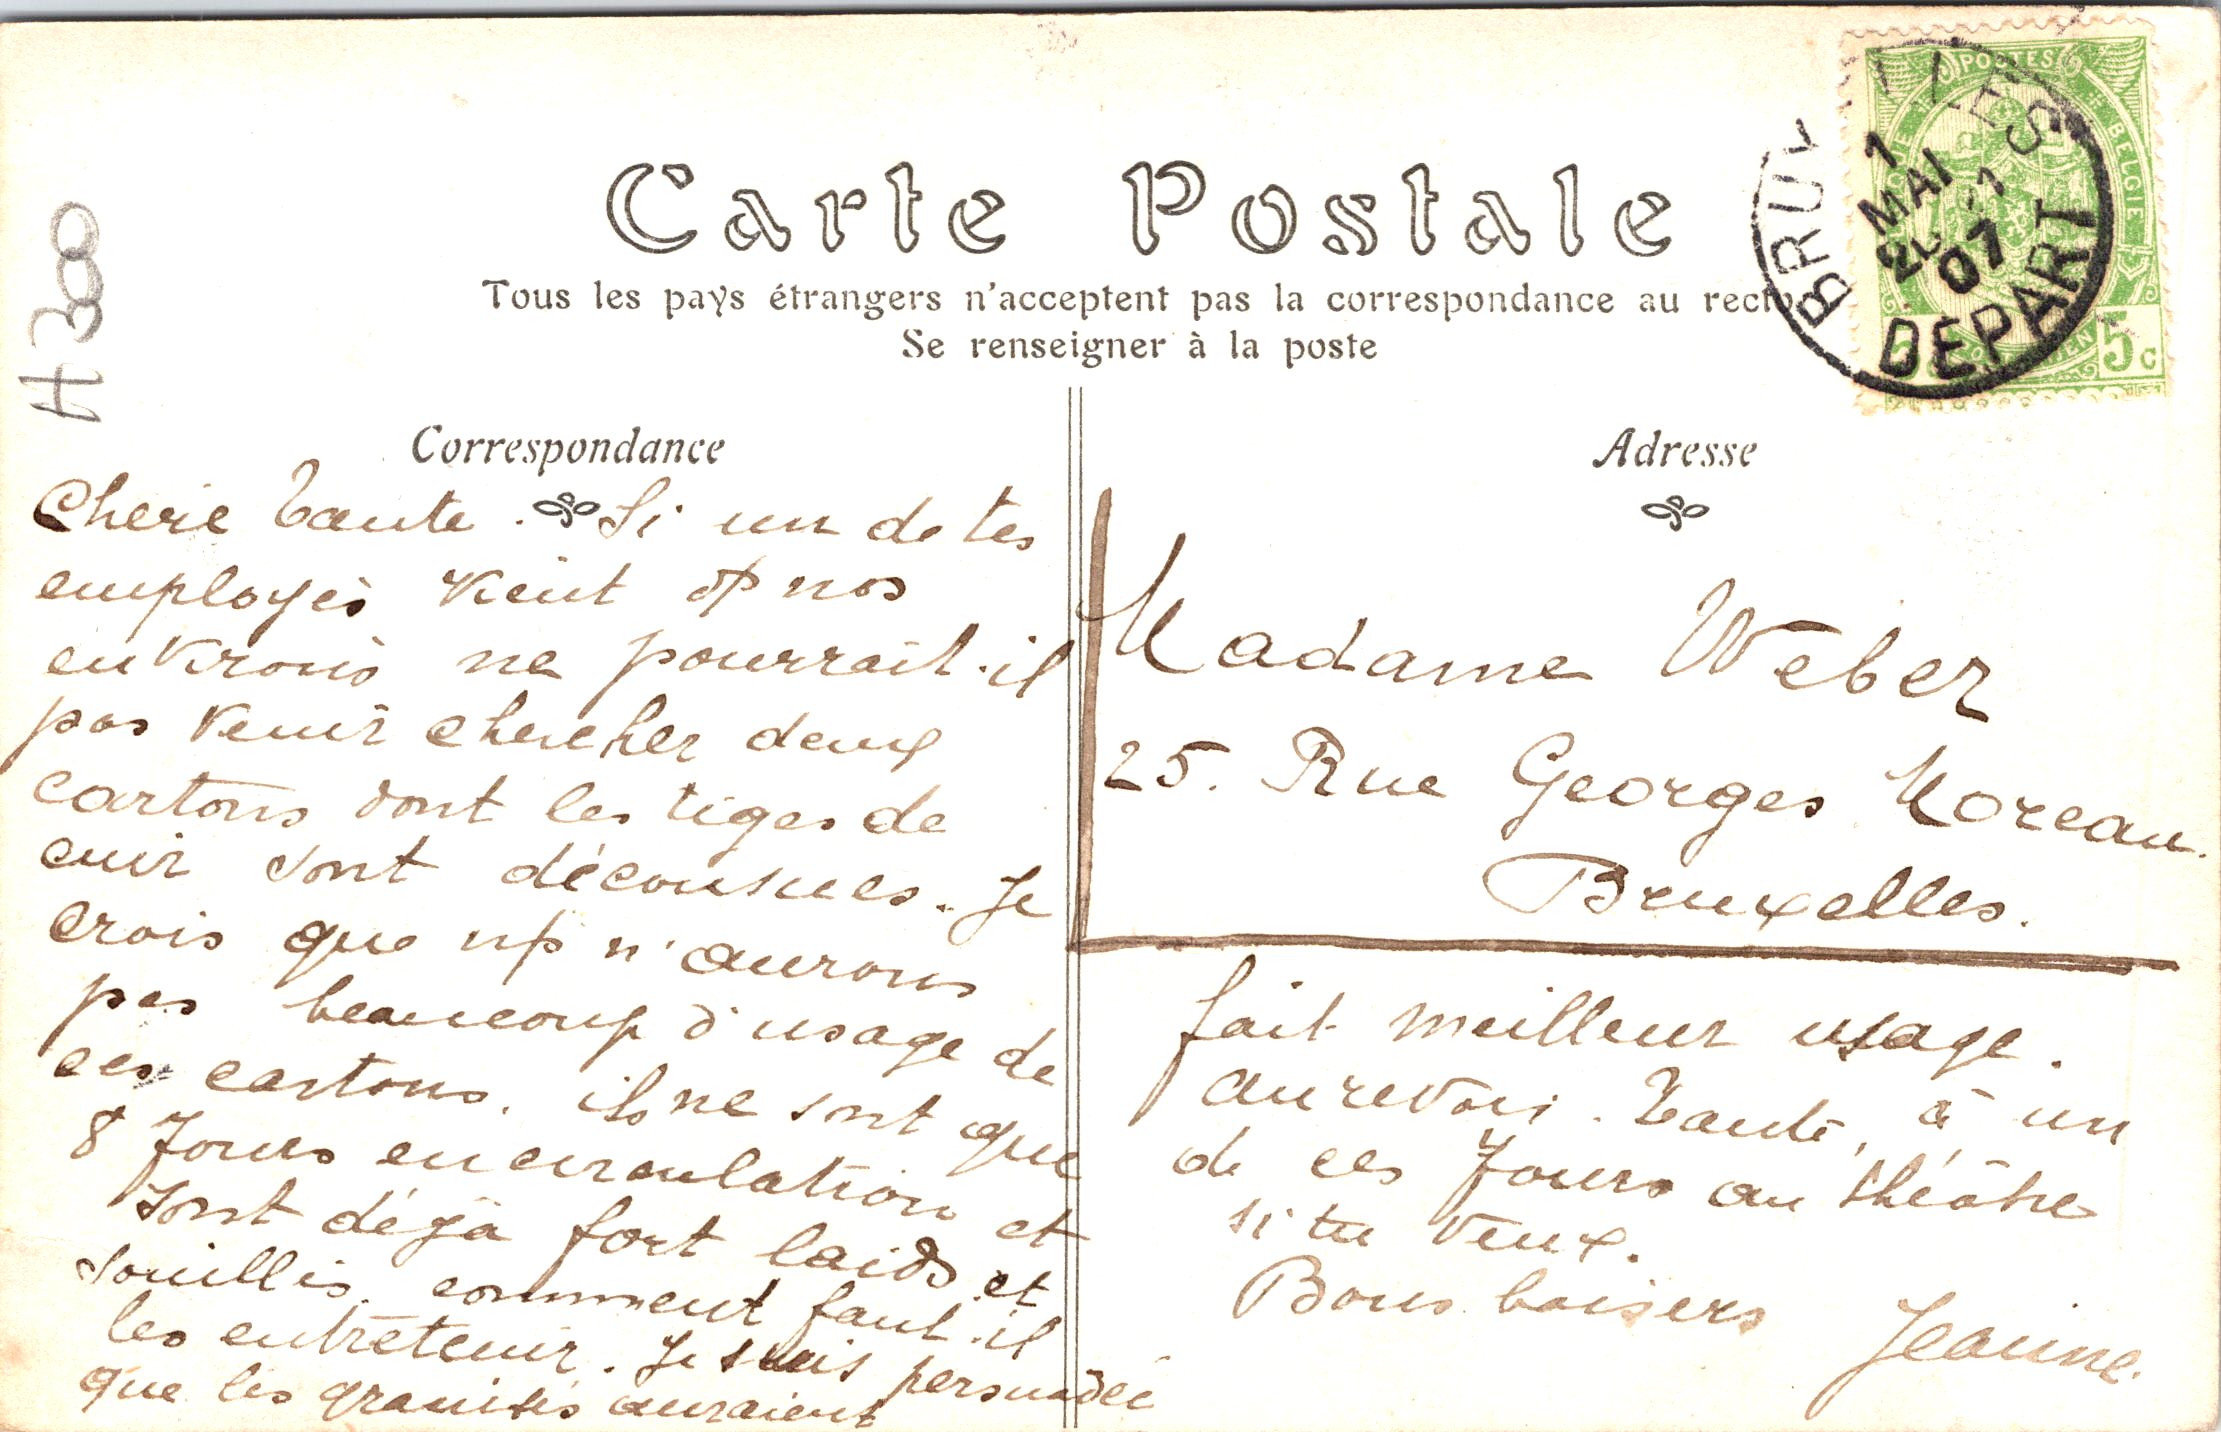 Carte Postale
Tous les pays étrangers n'acceptent pas la correspondance au recto
Se renseigner à la poste
A300
POSTES
BELGIE
5c
BRUX ES
1
MAI
07
DEPART
Correspondance
Adresse
Cherie Tante. Si un de tes
employés vient dps nos
environs ne pourrait-il
pas venir chercher deux
cartons dont les tiges de
cuir sont décousues. Je
crois que ns n'aurons
pas beaucoup d'usage de
ces cartons. ils ne sont que
8 Jours en circulation et
sont déjà fort laids et
souillés. comment faut-il
les entretenir. Je suis persuadée
que les granités auraient
Madame Weber
25. Rue Georges Moreau.
Bruxelles.
fait meilleur usage.
aurevoir. Tante, à un
de ces Jours au théâtre
si tu veux.
Bons baisers Jeanne.